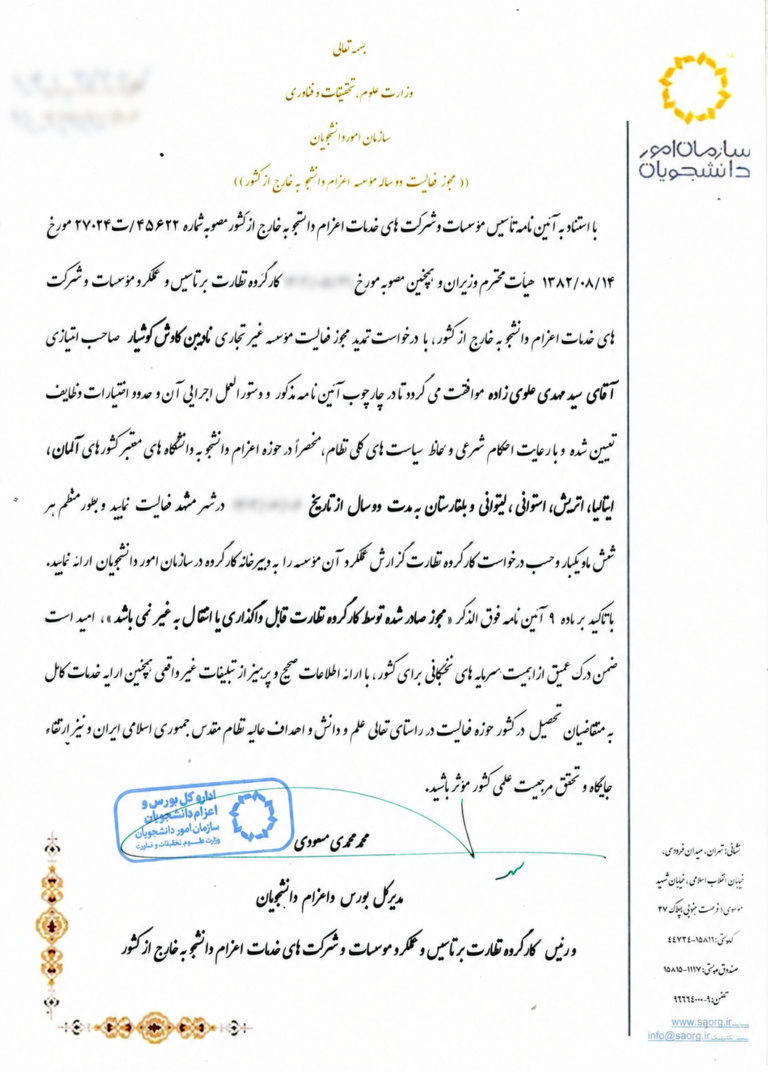 بسمه تعالی
وزارت علوم، تحقیقات و فناوری
سازمان امور دانشجویان
(( مجوز فعالیت دو ساله مؤسسه اعزام دانشجو به خارج از کشور ))
سازمان امور
دانشجویان
با استناد به آئین نامه تأسیس مؤسسات و شرکت های خدمات اعزام دانشجو به خارج از کشور مصوبه شماره ۴۵۶۲۲/ت۲۷۰۲۴ مورخ
۱۳۸۲/۰۸/۱۴ هیأت محترم وزیران و همچنین مصوبه مورخ کارگروه نظارت بر تاسیس و عملکرد مؤسسات و شرکت
های خدمات اعزام دانشجو به خارج از کشور، با درخواست تمدید مجوز فعالیت مؤسسه غیر تجاری نادبین کاوش کوشیار صاحب امتیازی
آقای سید مهدی علوی زاده موافقت می گردد تا در چارچوب آئین نامه مذکور و دستورالعمل اجرایی آن و حدود اختیارات وظایف
تعیین شده و با رعایت احکام شرعی و لحاظ سیاست های کلی نظام، منحصراً در حوزه اعزام دانشجو به دانشگاه های معتبر کشورهای آلمان،
ایتالیا، اتریش، استوانی، لیتوانی و بلغارستان به مدت دو سال از تاریخ در شهر مشهد فعالیت نمایید و بطور منظم هر
شش ماه یکبار و حسب درخواست کارگروه نظارت گزارش عملکرد آن مؤسسه را به دبیرخانه کارگروه در سازمان امور دانشجویان ارائه نمایید.
با تاکید بر ماده ۹ آئین نامه فوق الذکر «مجوز صادر شده توسط کارگروه نظارت قابل واگذاری یا انتقال به غیر نمی باشد»، امید است
ضمن درک عمیق از اهمیت سرمایه های نخبگانی برای کشور، با ارائه اطلاعات صحیح و پرهیز از تبلیغات غیر واقعی همچنین ارایه خدمات کامل
به متقاضیان تحصیل در کشور حوزه فعالیت در راستای تعالی علم و دانش و اهداف عالیه نظام مقدس جمهوری اسلامی ایران و نیز ارتقاء
جایگاه و تحقق مرجعیت علمی کشور مؤثر باشید.
اداره کل بورس و
اعزام دانشجویان
سازمان امور دانشجویان
وزارت علوم، تحقیقات و فناوری
محمد محمدی مسعودی
مدیرکل بورس و اعزام دانشجویان
و رئیس کارگروه نظارت بر تاسیس و عملکرد موسسات و شرکت های خدمات اعزام دانشجو به خارج از کشور
نشانی: تهران، میدان فردوسی،
خیابان انقلاب اسلامی، خیابان شهید
موسوی (فرصت جنوبی) پلاک ۲۷
کدپستی: ۱۵۸۱۱-۴۴۷۳۴
صندوق پستی: ۱۱۱۷-۱۵۸۱۵
تلفن: ۹-۹۶۶۶۴۰۰۰
www.saorg.ir
info@saorg.ir